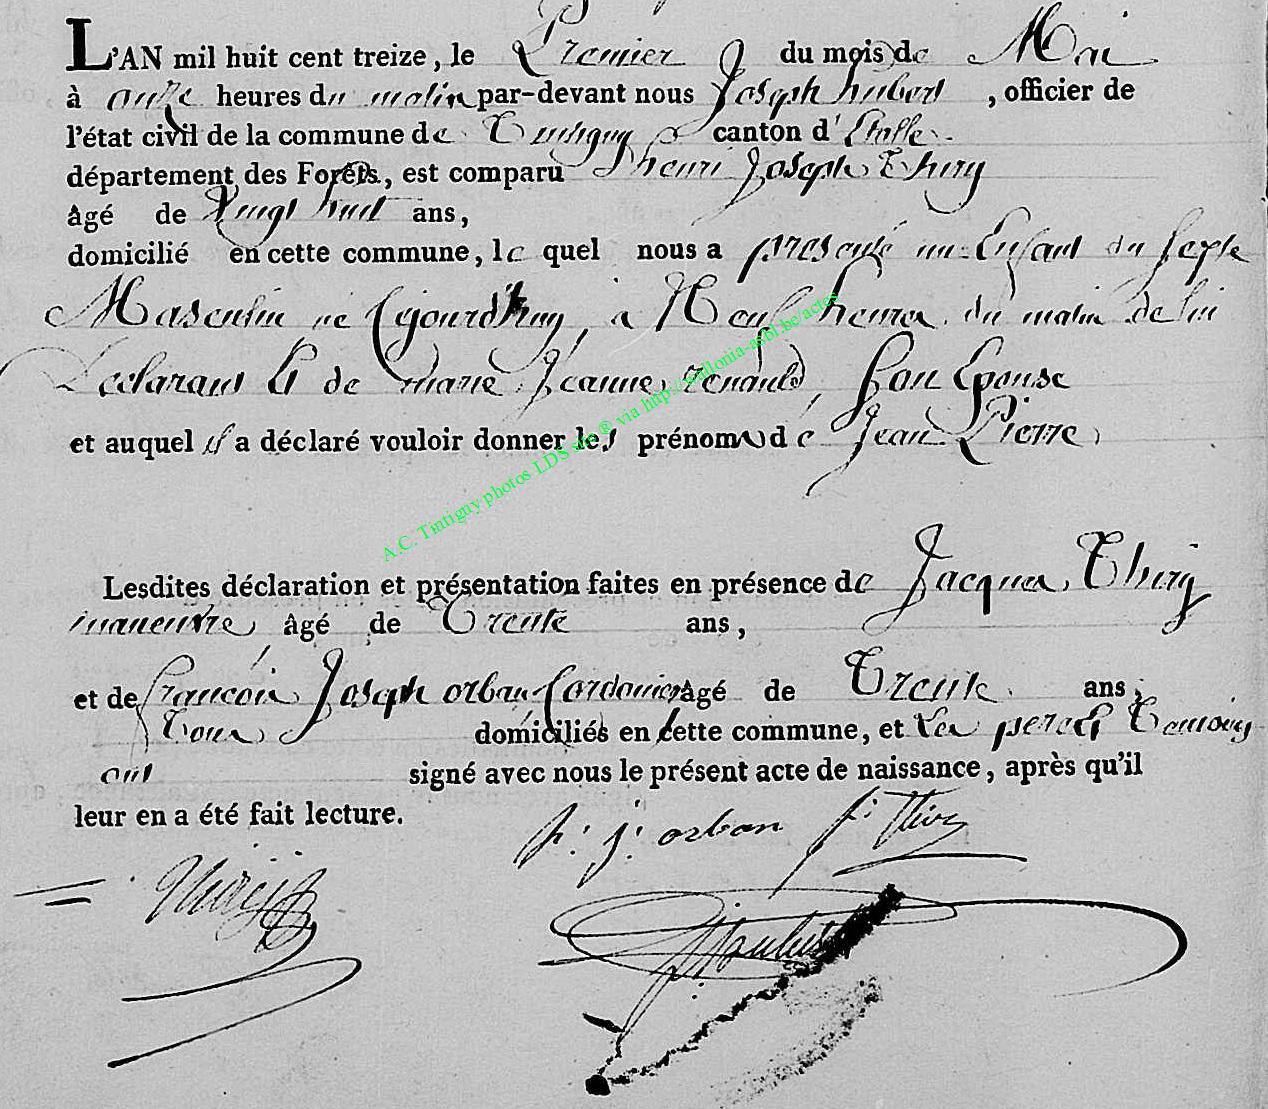 L'AN mil huit cent treize, le Premier du mois de Mai
à onze heures du matin par-devant nous Joseph hubert, officier de
l'état civil de la commune de Tintigny canton d'Etalle
département des Forêts, est comparu henri Joseph Thiry
âgé de Vingt huit ans,
domicilié en cette commune, le quel nous a presenté un Enfant du Sexe
Masculin né ajourdhuy, a Neuf heures du matin de lui
Declarant Et de marie Jeanne renauld, Son Epouse
et auquel il a déclaré vouloir donner les prénoms de Jean Pierre
Lesdites déclaration et présentation faites en présence de Jacques Thiry
maneuvre, âgé de Trente ans,
et de francois Joseph orban Cordonier âgé de Trente ans,
Tous domiciliés en cette commune, et Les pere Et Temoins
ont signé avec nous le présent acte de naissance, après qu'il
leur en a été fait lecture.
f: j: orban j: Thiry
Thiry
A.C. Tintigny photos LDS site ® via http://wallonia-asbl.be/actes